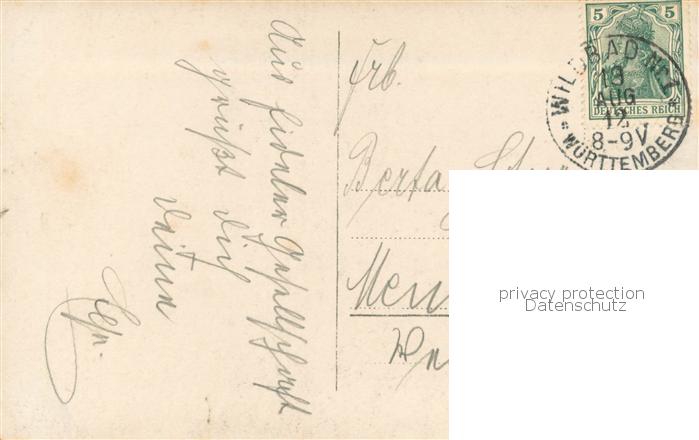 Aus fideler Gesellschaft
grüßt Dich
Deine
Frl.
Berta
5 5
DEUTSCHES REICH
WILDBAD No. 1
13
AUG
12
8-9V
* WÜRTTEMBERG *
privacy protection
Datenschutz